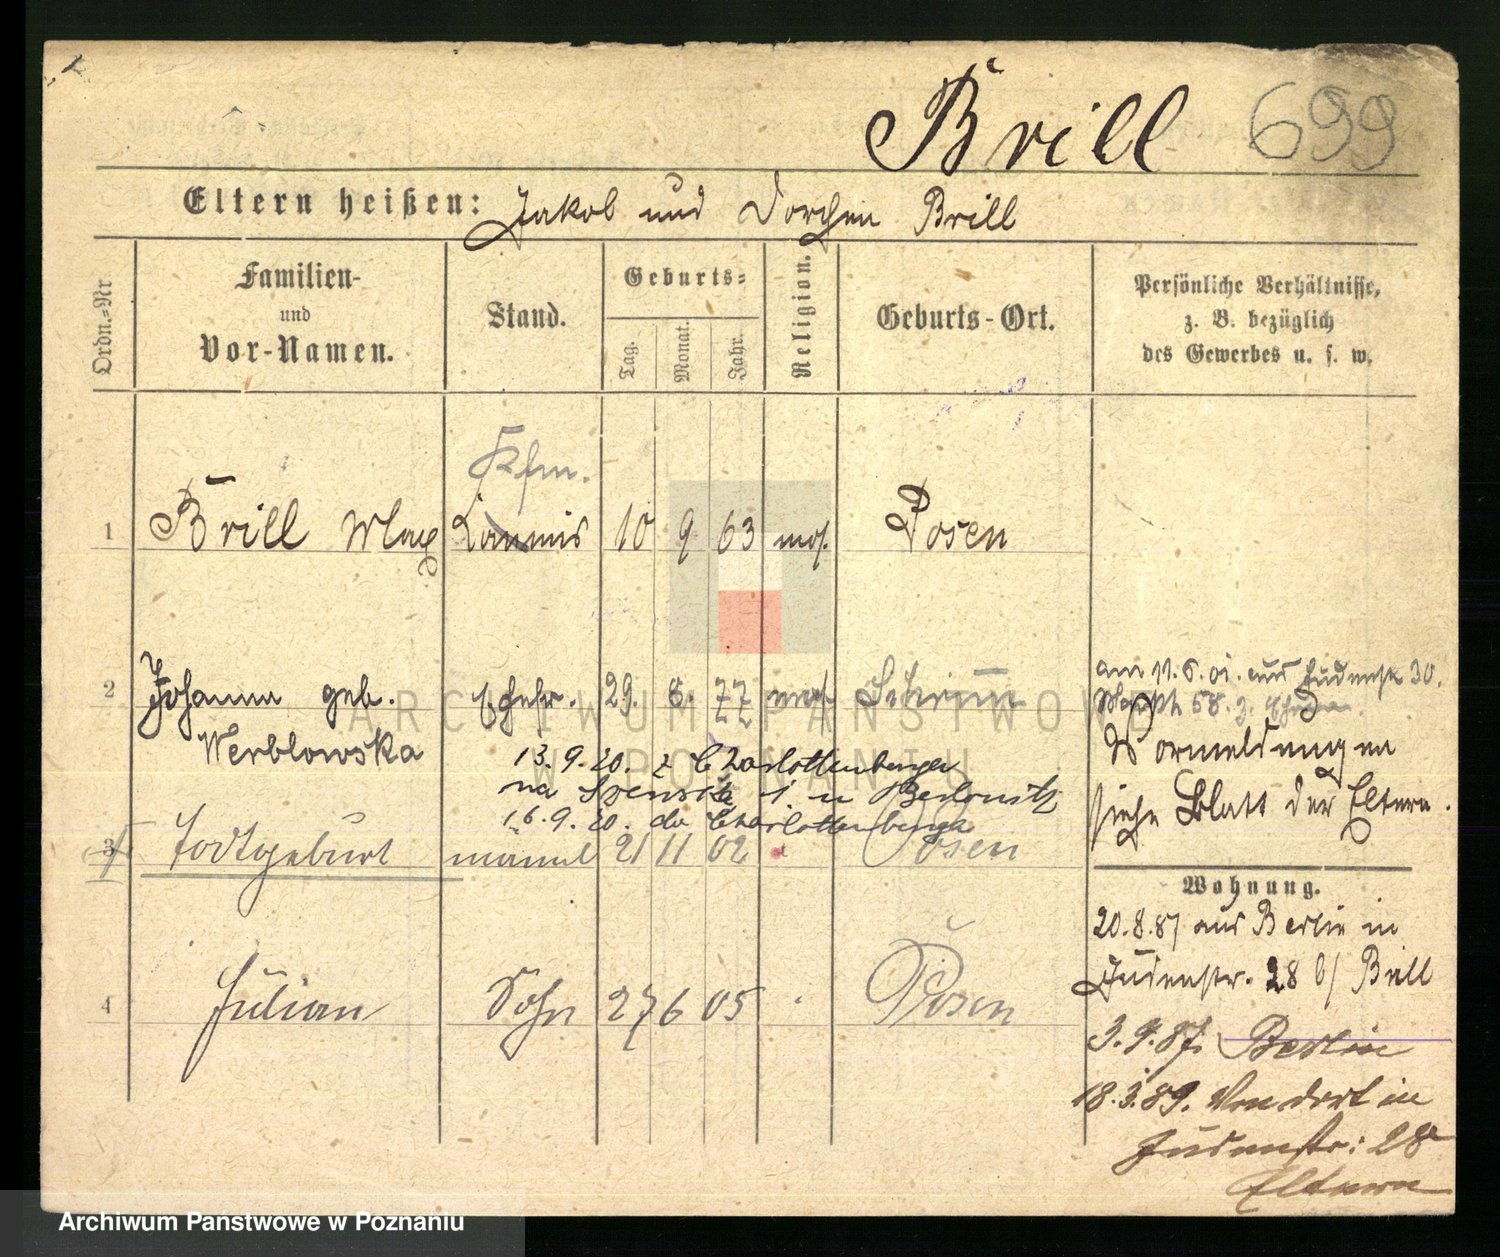 Brill 699
Eltern heißen: Jakob und Dorchen Brill
Ordn.-Nr
Familien-
und
Vor-Namen.
Stand.
Geburts-
Tag.
Monat.
Jahr.
Religion.
Geburts-Ort.
Persönliche Verhältnisse,
z. B. bezüglich
des Gewerbes u. s. w.
Kfm.
1 Brill Max Commis 10 9 63 mos. Posen
2 Johanna geb. Ehefr. 29. 8. 77 mos.
Werblowska
am 11.6.01. aus Judenstr 30.
Vormeldungen
siehe Blatt der Eltern.
13.9.20. z Charlottenberga
16.9.20. do Charlottenberga
3 Todtgeburt männl 21 11 02 Posen
Wohnung.
20.8.87 aus Berlin in
Judenstr. 28 b/ Brill
4 Julian Sohn 27 6 05 Posen
3.9.87. Berlin
18.3.89. Von dort in
Judenstr: 28
Eltern
ARCHIWUM PAŃSTWOWE
W POZNANIU
Archiwum Państwowe w Poznaniu